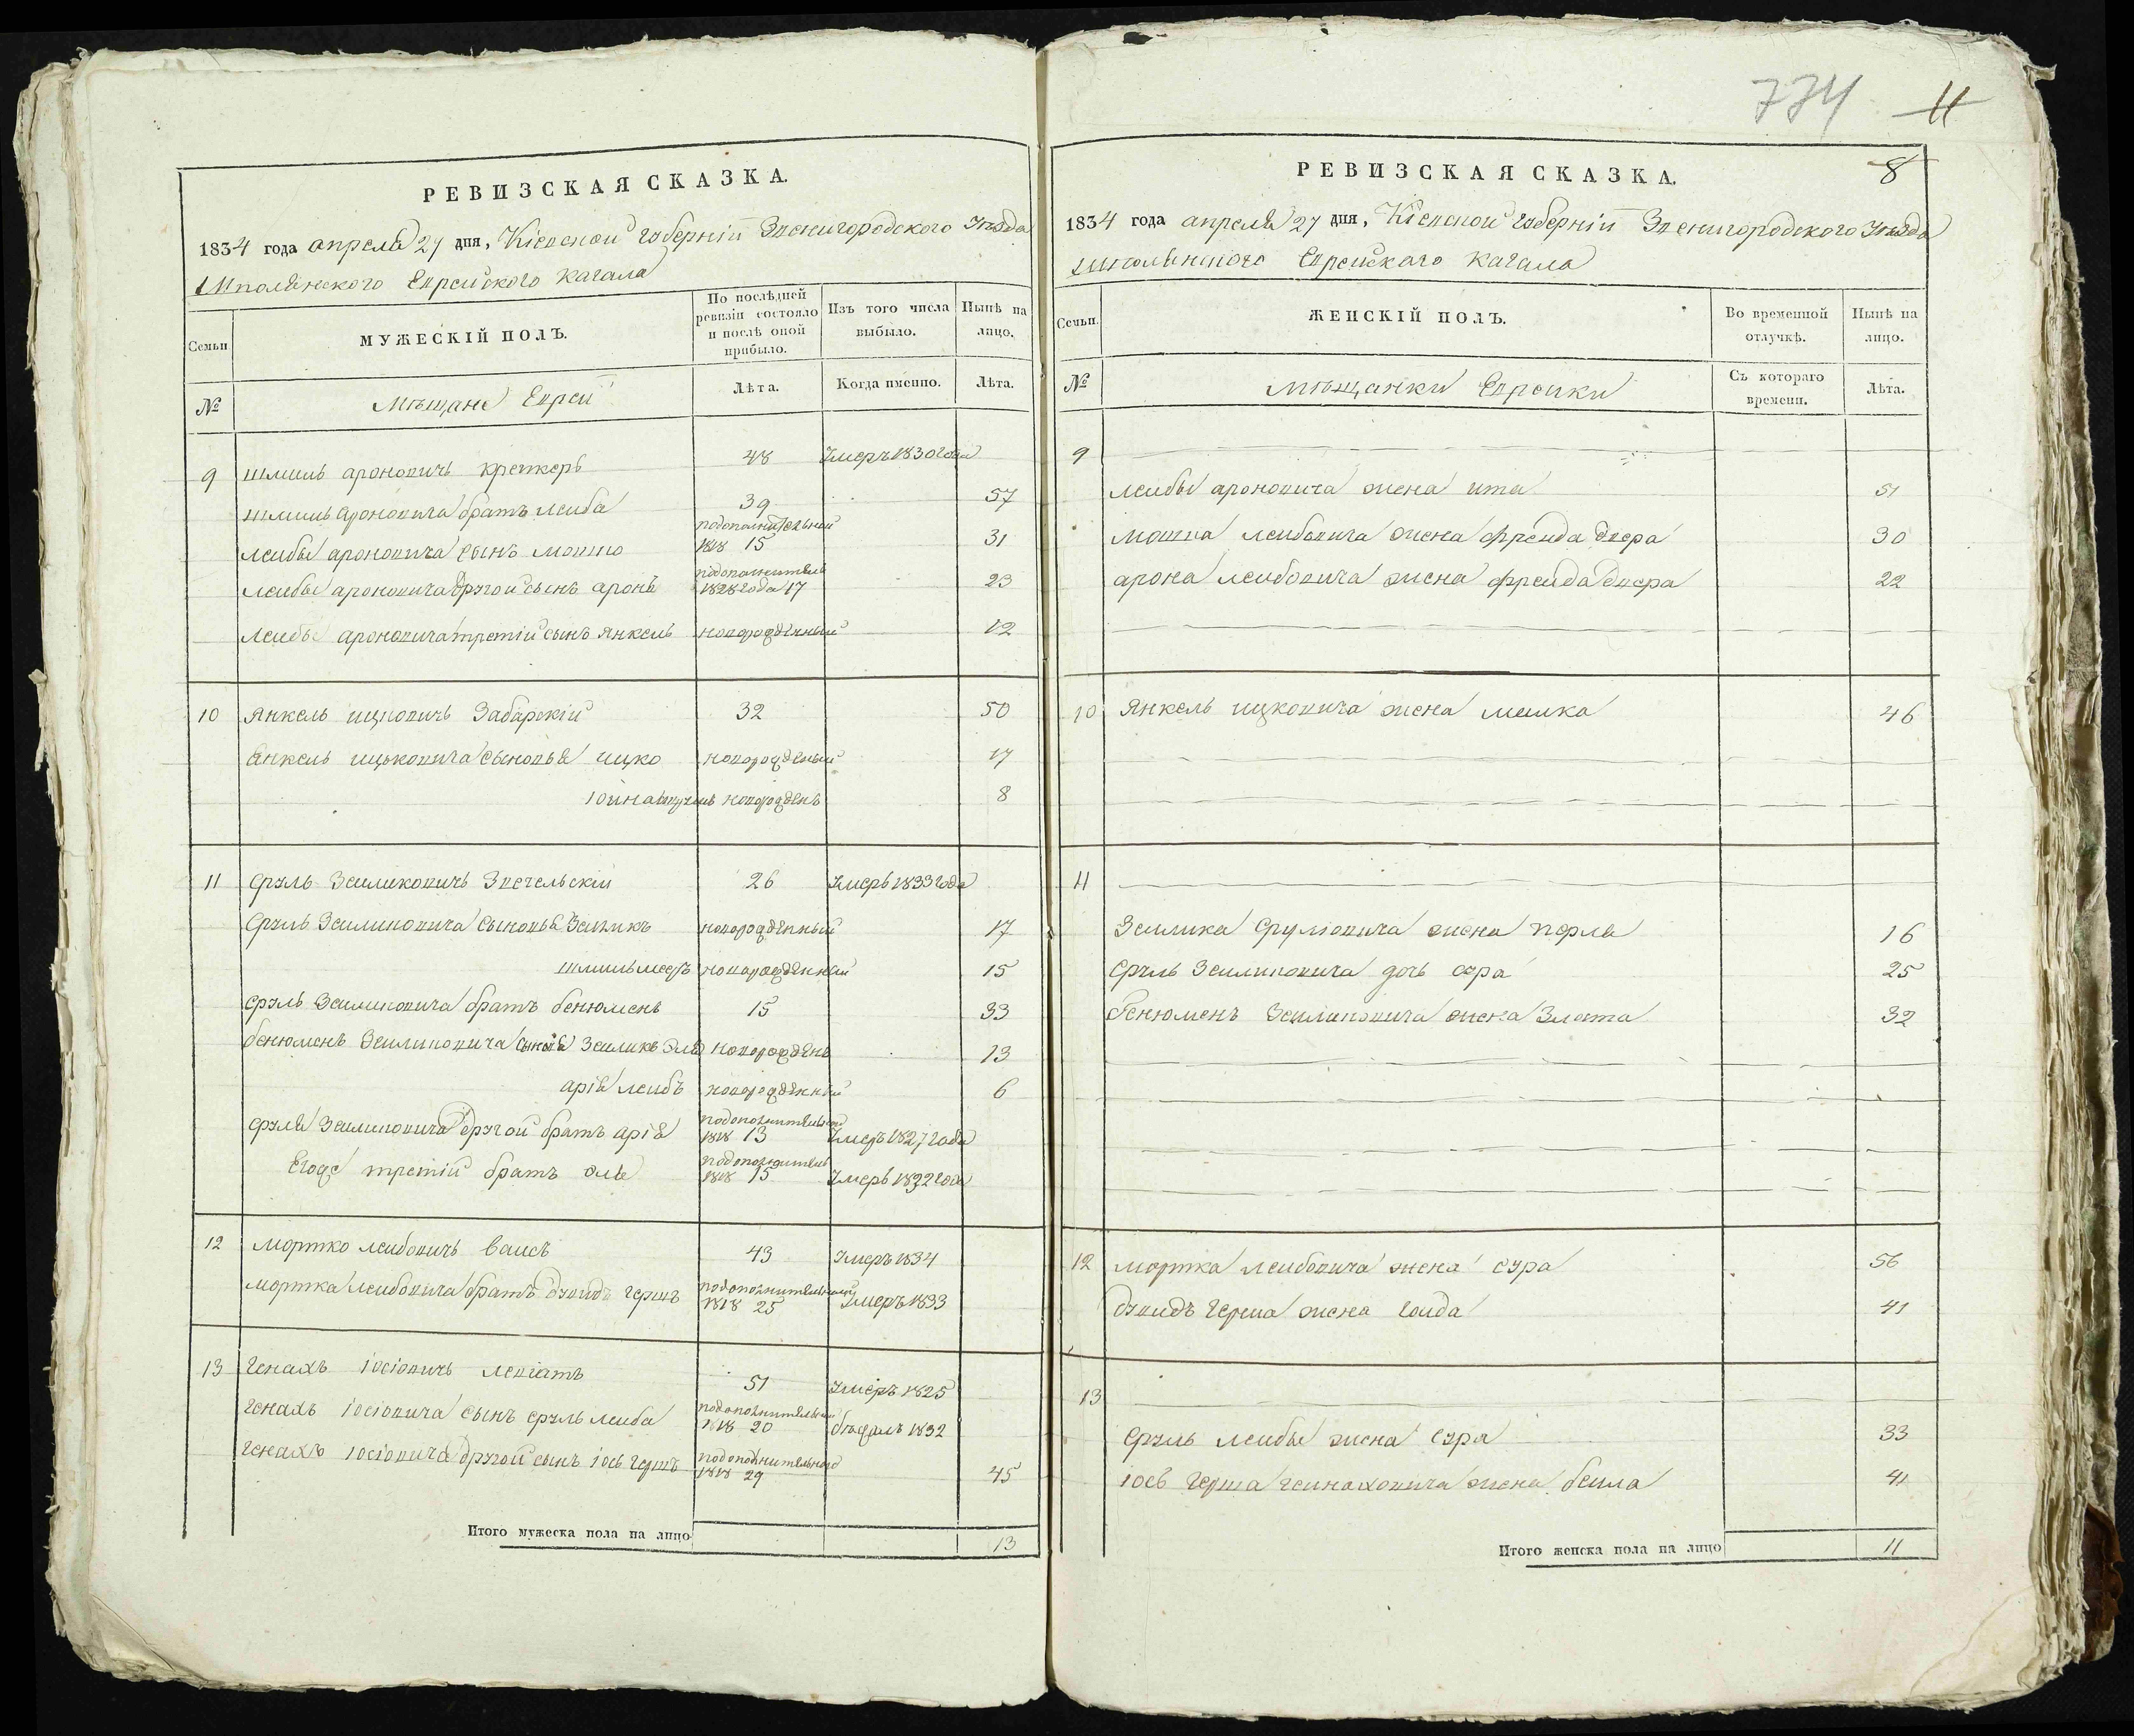 РЕВИЗСКАЯ СКАЗКА.
1834 года апреля 27 дня, Кіевской губерніи Звенигородского Уезда
Шполянского Еврейского Кагала
Семьи
МУЖЕСКІЙ ПОЛЪ.
По послѣдней ревизіи состояло и послѣ оной прибыло.
Изъ того числа выбыло.
Нынѣ на лицо.
№
Мѣщане Евреи
Лѣта.
Когда именно.
Лѣта.
9 Шмиль Ароновичъ 48 Умеръ 1830 года
Шмиль Ароновича братъ Лейба 39 57
Лейбы Ароновича сынъ Мошко подополнительной 1818 15 31
Лейбы Ароновича другой сынъ Аронъ 1828 года 17 23
Лейбы Ароновича третій сынъ Янкель новорожденный 12
10 Янкель Ицковичъ Забарскій 32 50
Янкель Ицьковича сыновья Ицко новорожденый 17
Іойна новорожденъ 8
11 Сруль Зейликовичъ 26 Умеръ 1833 года
Сруль Зейликовича сыновья Зейликъ новорожденный 17
новорожденный 15
Сруль Зейликовича братъ Бенюмень 15 33
Бенюменъ Зейликовича сыновья Зейликъ новорожденъ 13
Арія Лейбъ новорожденный 6
Сруля Зейликовича другой братъ Арія подополнительной 1818 13 Умеръ 1827 года
Егоже третій братъ Эля подополнитель 1818 15 Умеръ 1832 года
12 Мортко Лейбовичъ Вайсъ 43 Умеръ 1834
Мортка Лейбовича братъ Дувидъ Гершъ подополнительной 1818 25 Умеръ 1833
13 Генахъ Іосіовичъ 51 Умеръ 1825
Генахъ Іосіовича сынъ Сруль Лейба подополнительной 1818 20 бѣжалъ 1832
Генахъ Іосіовича другой сынъ Іось Гершъ подополнительной 1818 29 45
Итого мужеска пола на лицо 13
774 11
РЕВИЗСКАЯ СКАЗКА. 8
1834 года апреля 27 дня, Кіевской губерніи Звенигородского Уезда
Шполянского Еврейскаго Кагала
Семьи.
ЖЕНСКІЙ ПОЛЪ.
Во временной отлучкѣ.
Нынѣ на лицо.
№
Мѣщанки Еврейки
Съ котораго времени.
Лѣта.
9
Лейбы Ароновича жена Ита 51
Мошка Лейбовича жена Фрейда Двера 30
Арона Лейбовича жена Фрейда Двера 22
10 Янкель Ицковича жена 46
11
Зейлика Срулювича жена Перля 16
Сруль Зейликовича дочь Сура 25
Бенюменъ Зейликовича жена Злота 32
12 Мортка Лейбовича жена Сура 56
Дувидъ Герша жена Гоида 41
13
Сруль Лейбы жена Сура 33
Іось Герша Гейнаховича жена Бейла 41
Итого женска пола на лицо 11